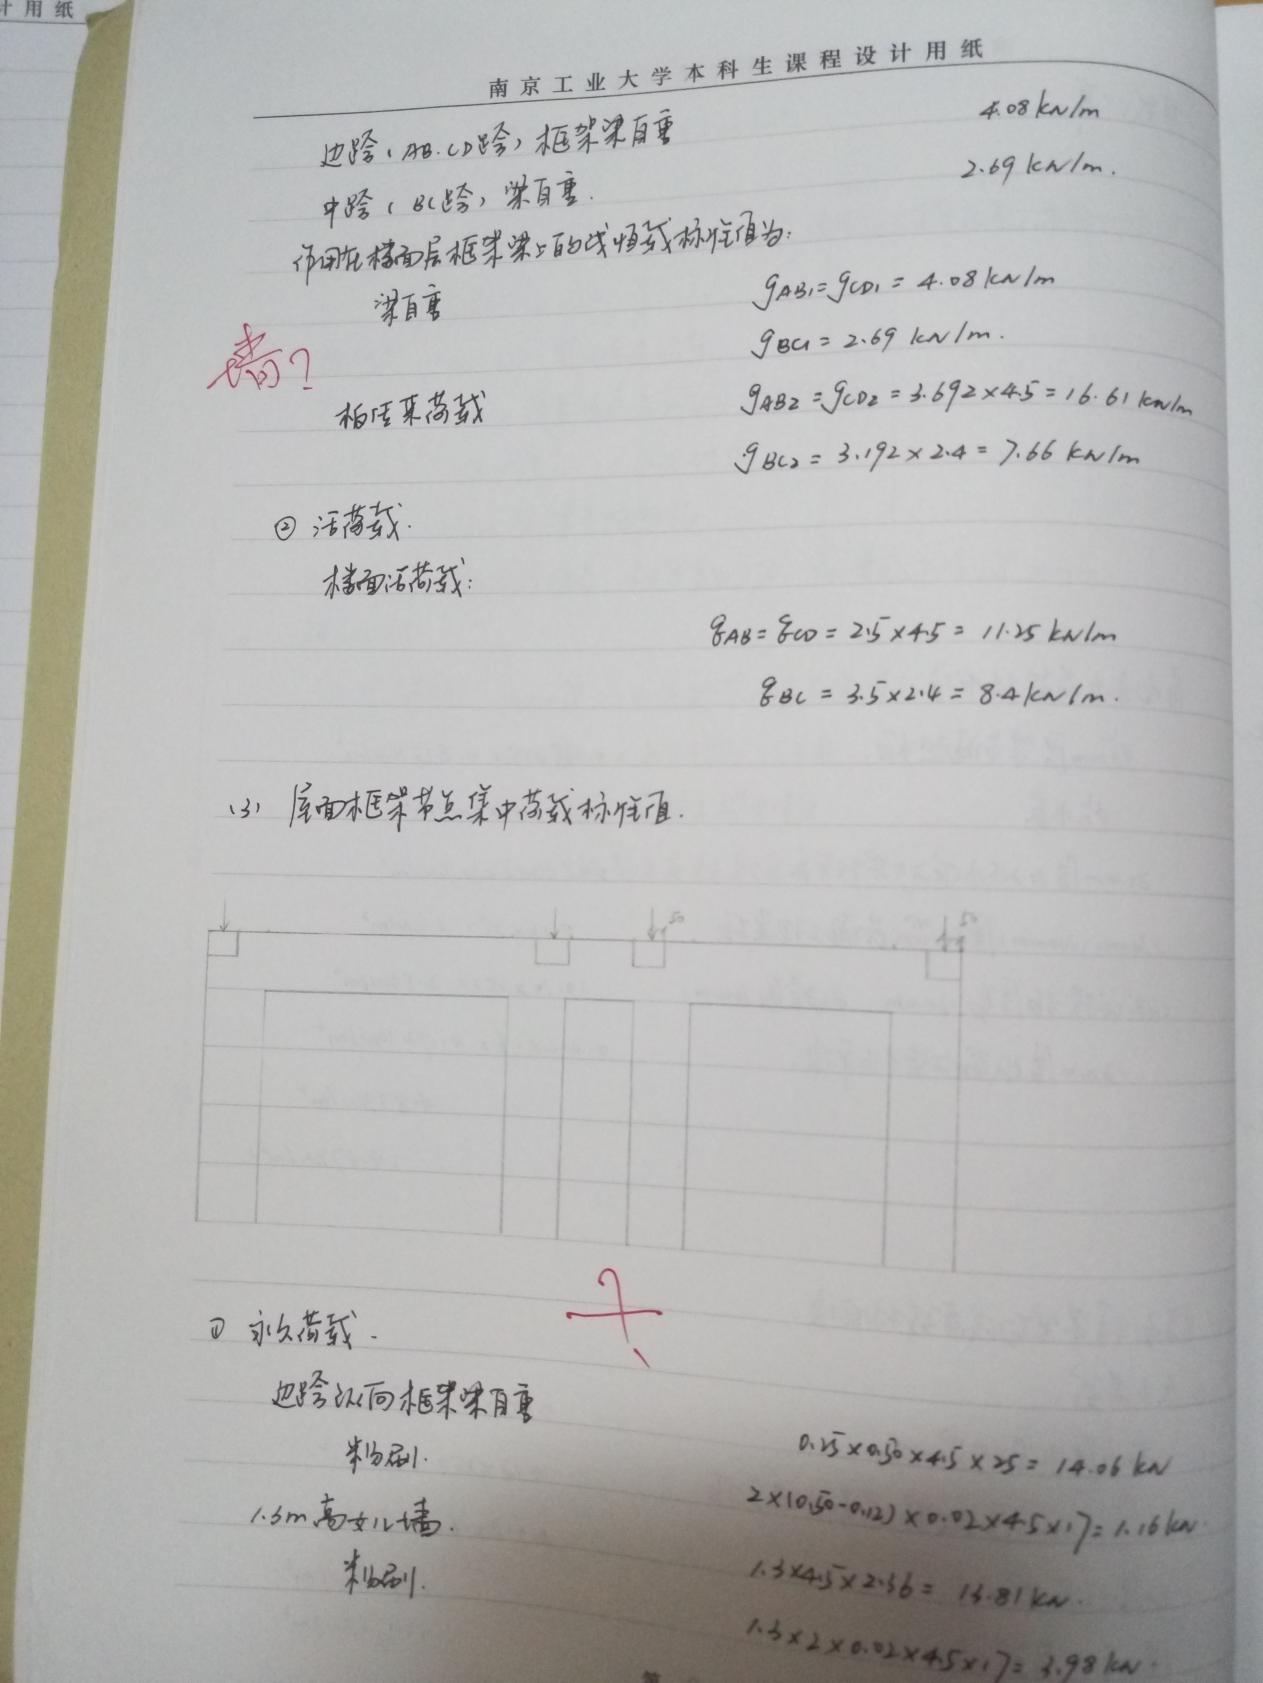 计用纸
南京工业大学本科生课程设计用纸
边跨(AB.CD跨)框架梁自重 4.08kN/m
中跨(BC跨)梁自重. 2.69kN/m.
作用在楼面层框架梁上的线恒载标准值为:
梁自重 gAB1=gCD1=4.08kN/m
墙?
gBC1=2.69 kN/m.
板传来荷载 gAB2=gCD2=3.692×4.5=16.61kN/m
gBC2=3.192×2.4=7.66 kN/m
② 活荷载.
楼面活荷载:
qAB=qCD=2.5×4.5=11.25kN/m
qBC=3.5×2.4=8.4kN/m.
(3) 屋面框架节点集中荷载标准值.
50 50
?
① 永久荷载.
边跨纵向框架梁自重 0.25×0.50×4.5×25=14.06kN
粉刷. 2×(0.50-0.12)×0.02×4.5×17=1.16kN
1.3m高女儿墙. 1.3×4.5×2.36=13.81kN.
粉刷. 1.3×2×0.02×4.5×17=3.98kN.
第